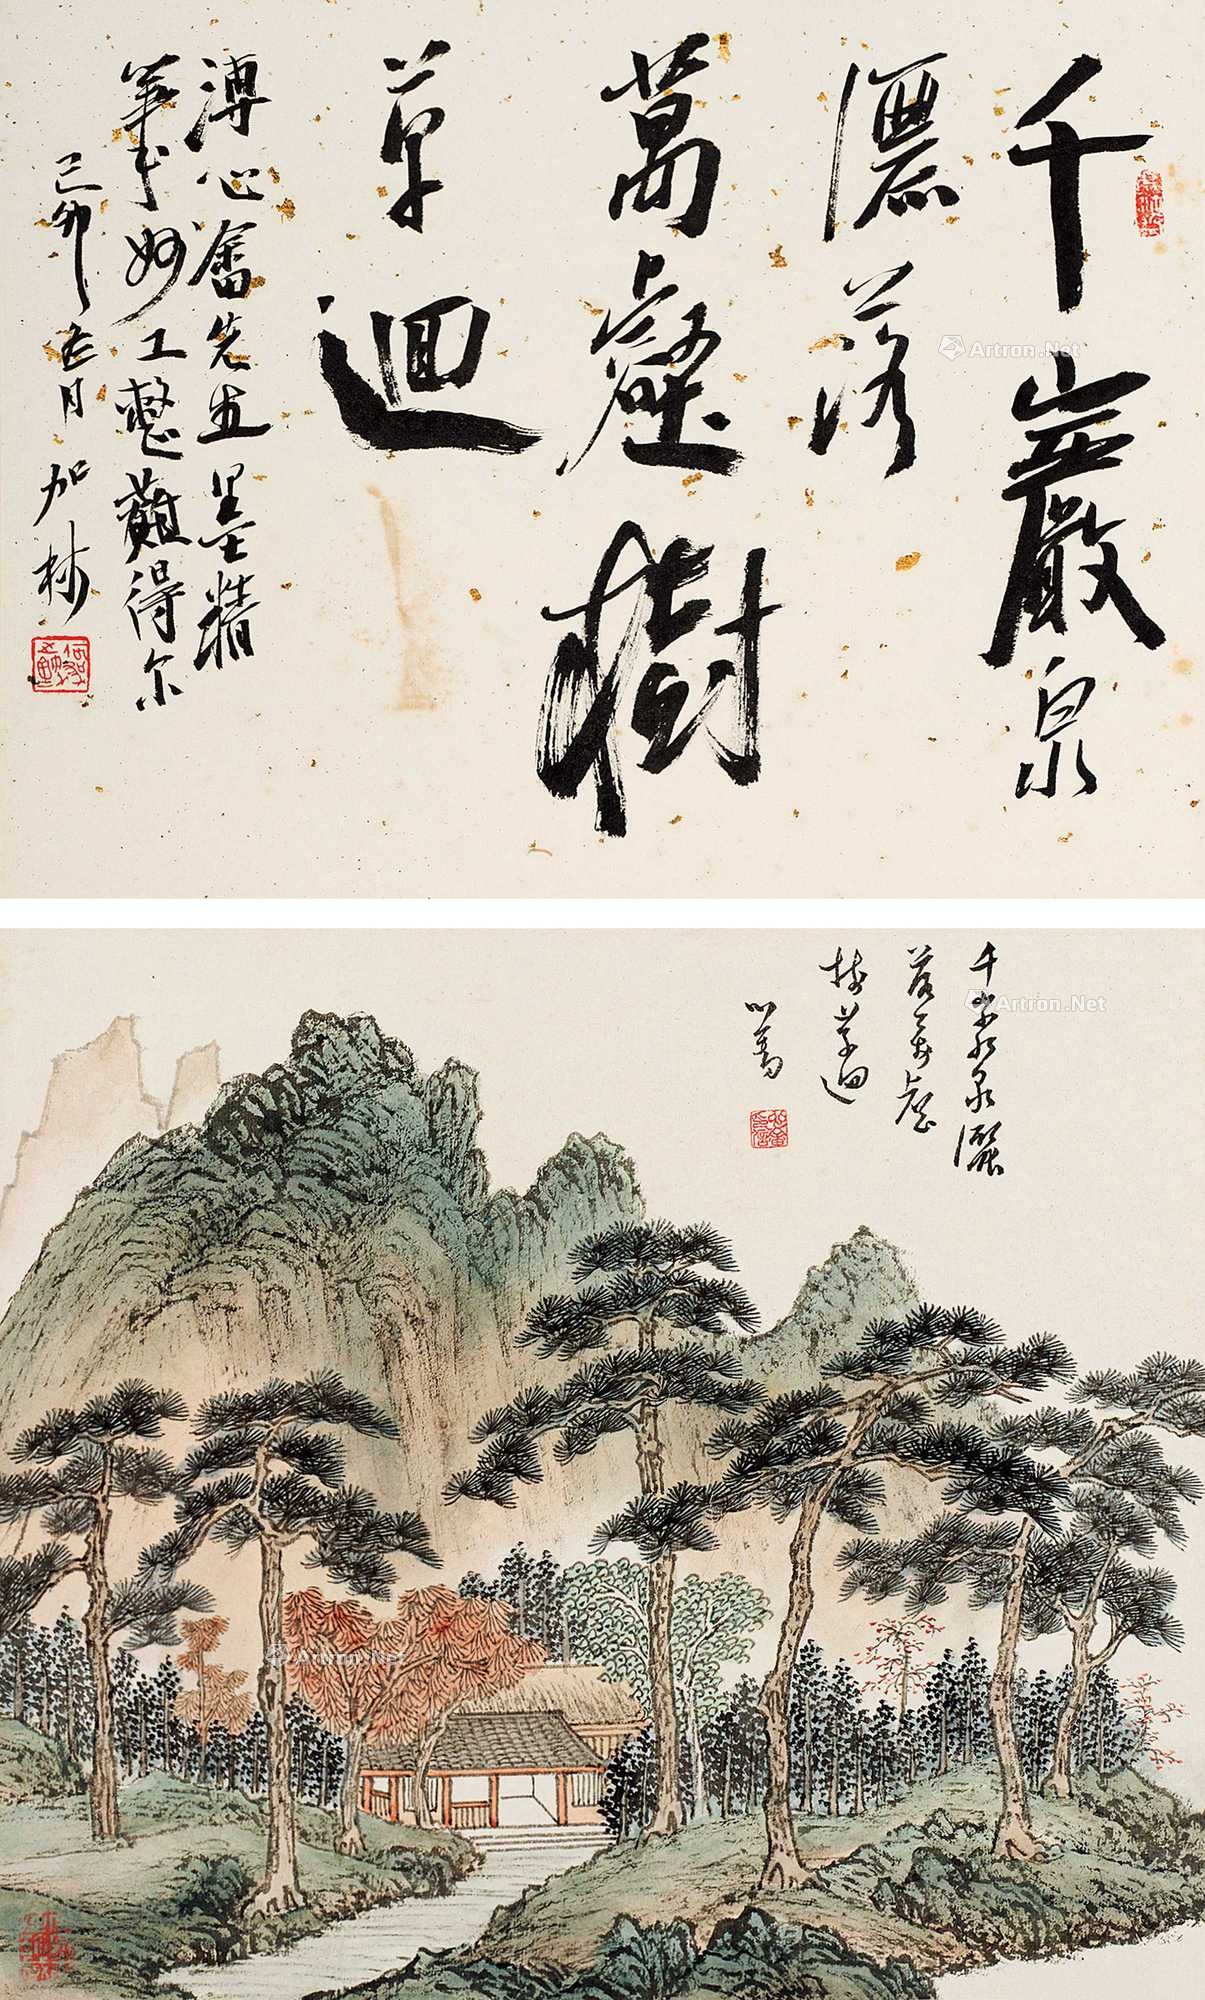 千巖泉
灑落
萬壑樹
萃迴
溥心畬先生墨精
筆妙工整難得尔
己卯 月 加
Artron.Net
千岩泉灑
落萬壑
樹萃迴
心畬
Artron.Net
Artron.Net